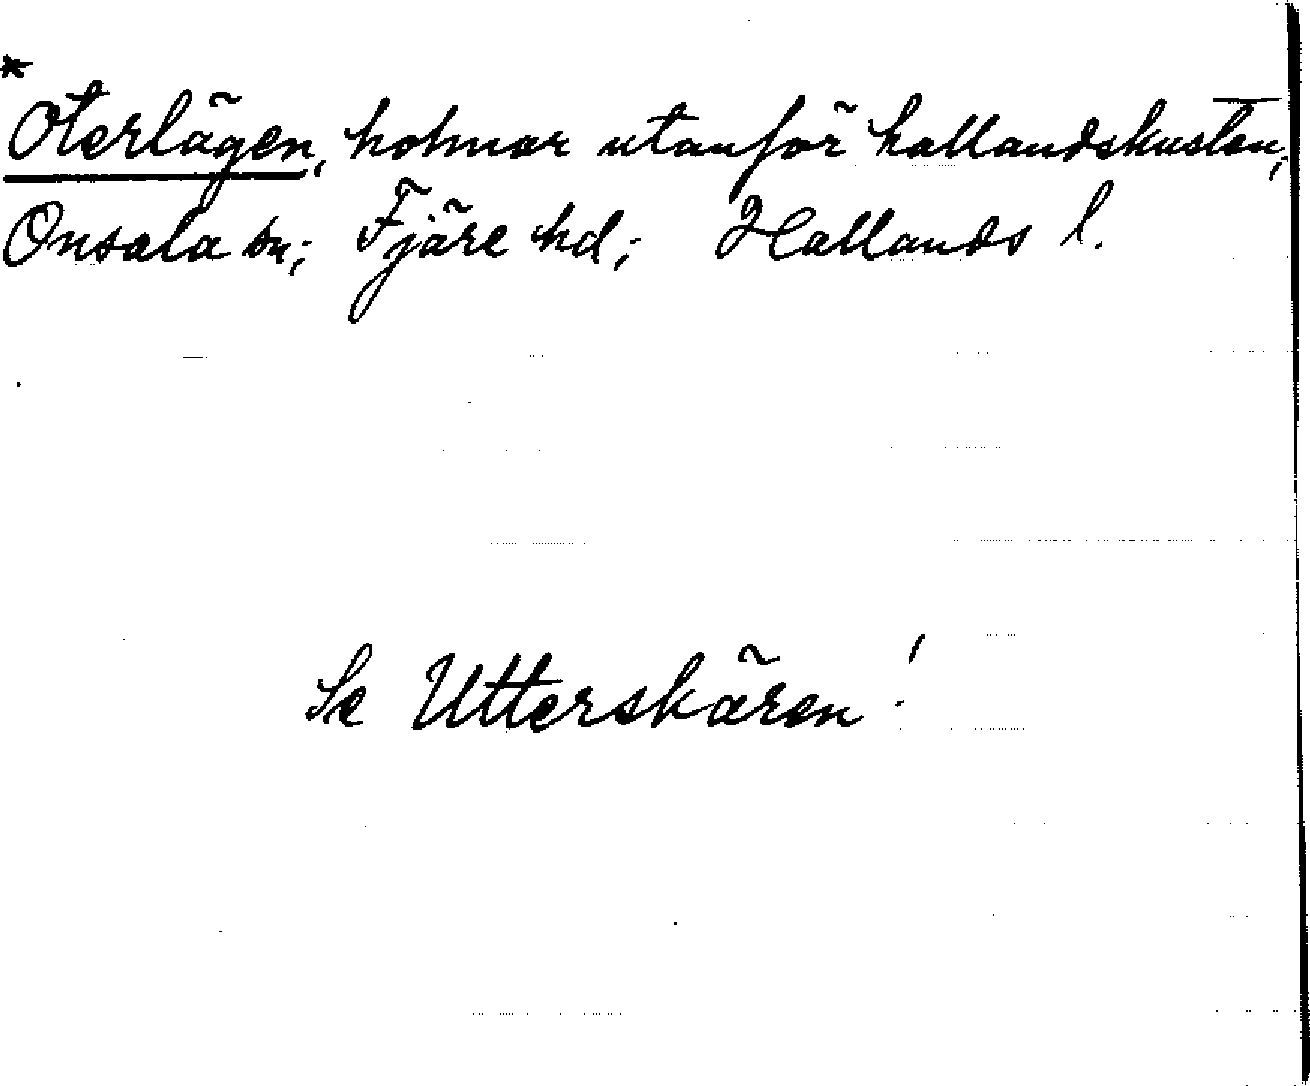 *
Oterlägen, holmar utanför hallandskusten,
Onsala sn; Fjäre hd; Hallands l.
Se Utterskären!